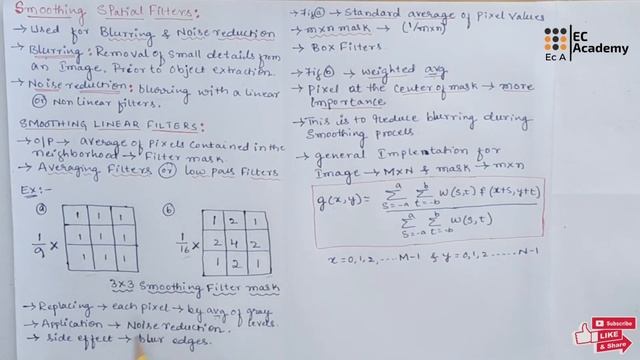 Smoothing Spatial Filters:
→ Used for Blurring & Noise reduction
→ Blurring: Removal of small details from
an Image, Prior to object extraction.
→ Noise reduction: blurring with a linear
or Non linear filters.
SMOOTHING LINEAR FILTERS:
→ O/P → average of pixels contained in the
neighborhood → Filter mask.
→ Averaging Filters or low pass Filters
Ex:-
a
1/9 ×
1 1 1
1 1 1
1 1 1
b
1/16 ×
1 2 1
2 4 2
1 2 1
3×3 Smoothing Filter mask
→ Replacing → each pixel → by avg of gray
levels.
→ Application → Noise reduction.
→ side effect → blur edges.
→ Fig a → Standard average of pixel values
→ m×n mask → (1/m×n)
→ Box Filters.
→ Fig b → weighted avg
→ Pixel at the center of mask → more
Importance
→ This is to reduce blurring during
Smoothing process
→ general Implentation for
Image → M×N & mask → m×n
g(x,y) = Σ s=-a a Σ t=-b b w(s,t) f(x+s, y+t) / Σ s=-a a Σ t=-b b w(s,t)
x = 0,1,2, ... M-1 & y = 0,1,2 ..... N-1
EC
Academy
Ec A
Subscribe
LIKE
& Share